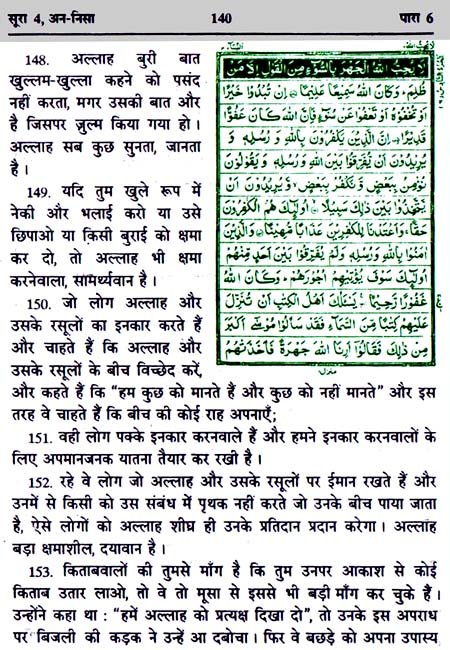 सूरा 4, अन-निसा 140 पारा 6
148. अल्लाह बुरी बात
खुल्लम-खुल्ला कहने को पसंद
नहीं करता, मगर उसकी बात और
है जिसपर ज़ुल्म किया गया हो।
अल्लाह सब कुछ सुनता, जानता
है।
149. यदि तुम खुले रूप में
नेकी और भलाई करो या उसे
छिपाओ या किसी बुराई को क्षमा
कर दो, तो अल्लाह भी क्षमा
करनेवाला, सामर्थ्यवान है।
150. जो लोग अल्लाह और
उसके रसूलों का इनकार करते हैं
और चाहते हैं कि अल्लाह और
उसके रसूलों के बीच विच्छेद करें,
لَا يُحِبُّ اللهُ الْجَهْرَ بِالسُّوْٓءِ مِنَ الْقَوْلِ اِلَّا مَنْ
ظُلِمَ وَكَانَ اللهُ سَمِيْعًا عَلِيْمًا اِنْ تُبْدُوْا خَيْرًا
اَوْ تُخْفُوْهُ اَوْ تَعْفُوْا عَنْ سُوْٓءٍ فَاِنَّ اللهَ كَانَ عَفُوًّا
قَدِيْرًا اِنَّ الَّذِيْنَ يَكْفُرُوْنَ بِاللهِ وَرُسُلِهٖ وَ
يُرِيْدُوْنَ اَنْ يُّفَرِّقُوْا بَيْنَ اللهِ وَرُسُلِهٖ وَيَقُوْلُوْنَ
نُؤْمِنُ بِبَعْضٍ وَّنَكْفُرُ بِبَعْضٍ وَّيُرِيْدُوْنَ اَنْ
يَّتَّخِذُوْا بَيْنَ ذٰلِكَ سَبِيْلًا اُولٰٓئِكَ هُمُ الْكٰفِرُوْنَ
حَقًّا وَاَعْتَدْنَا لِلْكٰفِرِيْنَ عَذَابًا مُّهِيْنًا وَالَّذِيْنَ
اٰمَنُوْا بِاللهِ وَرُسُلِهٖ وَلَمْ يُفَرِّقُوْا بَيْنَ اَحَدٍ مِّنْهُمْ
اُولٰٓئِكَ سَوْفَ يُؤْتِيْهِمْ اُجُوْرَهُمْ وَكَانَ اللهُ
غَفُوْرًا رَّحِيْمًا يَسْـَٔلُكَ اَهْلُ الْكِتٰبِ اَنْ تُنَزِّلَ
عَلَيْهِمْ كِتٰبًا مِّنَ السَّمَآءِ فَقَدْ سَاَلُوْا مُوْسٰٓى اَكْبَرَ
مِنْ ذٰلِكَ فَقَالُوْٓا اَرِنَا اللهَ جَهْرَةً فَاَخَذَتْهُمُ
और कहते हैं कि “हम कुछ को मानते हैं और कुछ को नहीं मानते” और इस
तरह वे चाहते हैं कि बीच की कोई राह अपनाएँ;
151. वही लोग पक्के इनकार करनवाले हैं और हमने इनकार करनवालों के
लिए अपमानजनक यातना तैयार कर रखी है।
152. रहे वे लोग जो अल्लाह और उसके रसूलों पर ईमान रखते हैं और
उनमें से किसी को उस संबंध में पृथक नहीं करते जो उनके बीच पाया जाता
है, ऐसे लोगों को अल्लाह शीघ्र ही उनके प्रतिदान प्रदान करेगा। अल्लाह
बड़ा क्षमाशील, दयावान है।
153. किताबवालों की तुमसे माँग है कि तुम उनपर आकाश से कोई
किताब उतार लाओ, तो वे तो मूसा से इससे भी बड़ी माँग कर चुके हैं।
उन्होंने कहा था : “हमें अल्लाह को प्रत्यक्ष दिखा दो”, तो उनके इस अपराध
पर बिजली की कड़क ने उन्हें आ दबोचा। फिर वे बछड़े को अपना उपास्य